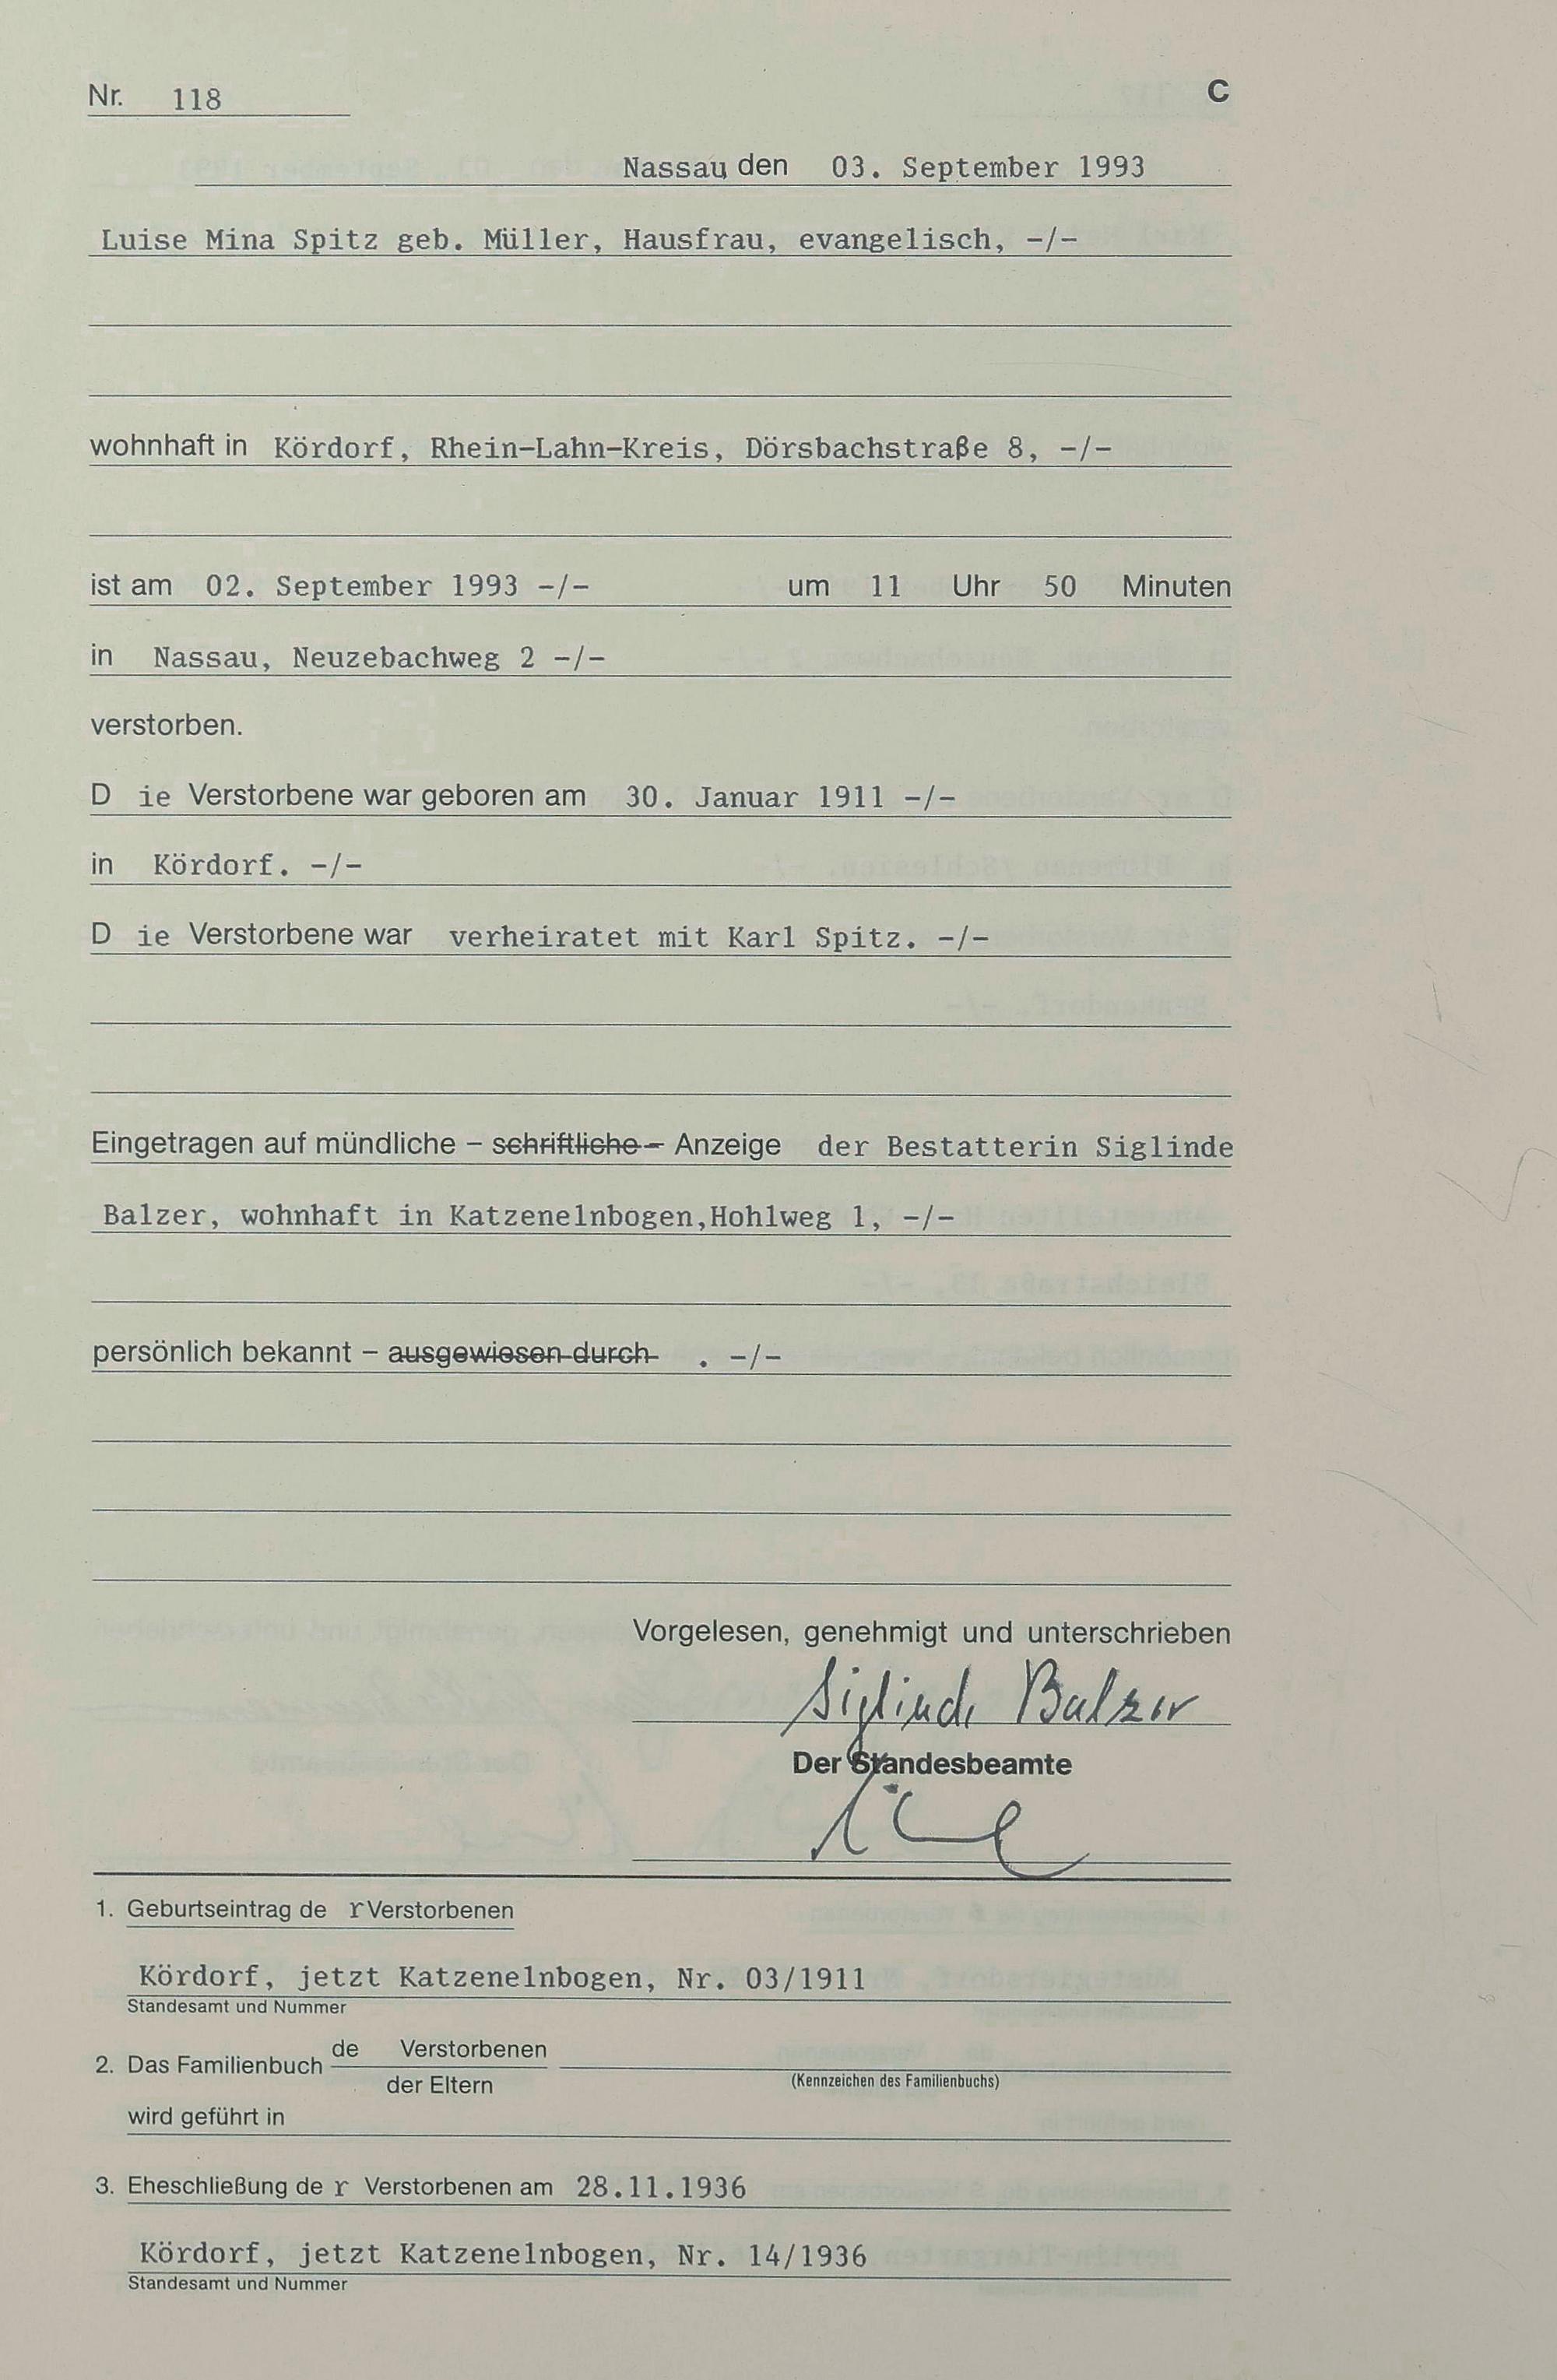 Nr. 118 C
Nassau den 03. September 1993
Luise Mina Spitz geb. Müller, Hausfrau, evangelisch, -/-
wohnhaft in Kördorf, Rhein-Lahn-Kreis, Dörsbachstraße 8, -/-
ist am 02. September 1993 -/- um 11 Uhr 50 Minuten
in Nassau, Neuzebachweg 2 -/-
verstorben.
D ie Verstorbene war geboren am 30. Januar 1911 -/-
in Kördorf. -/-
D ie Verstorbene war verheiratet mit Karl Spitz. -/-
Eingetragen auf mündliche – schriftliche – Anzeige der Bestatterin Siglinde
Balzer, wohnhaft in Katzenelnbogen,Hohlweg 1, -/-
persönlich bekannt – ausgewiesen durch . -/-
Vorgelesen, genehmigt und unterschrieben
Siglinde Balzer
Der Standesbeamte
1. Geburtseintrag de r Verstorbenen
Kördorf, jetzt Katzenelnbogen, Nr. 03/1911
Standesamt und Nummer
de Verstorbenen
2. Das Familienbuch
der Eltern (Kennzeichen des Familienbuchs)
wird geführt in
3. Eheschließung de r Verstorbenen am 28.11.1936
Kördorf, jetzt Katzenelnbogen, Nr. 14/1936
Standesamt und Nummer